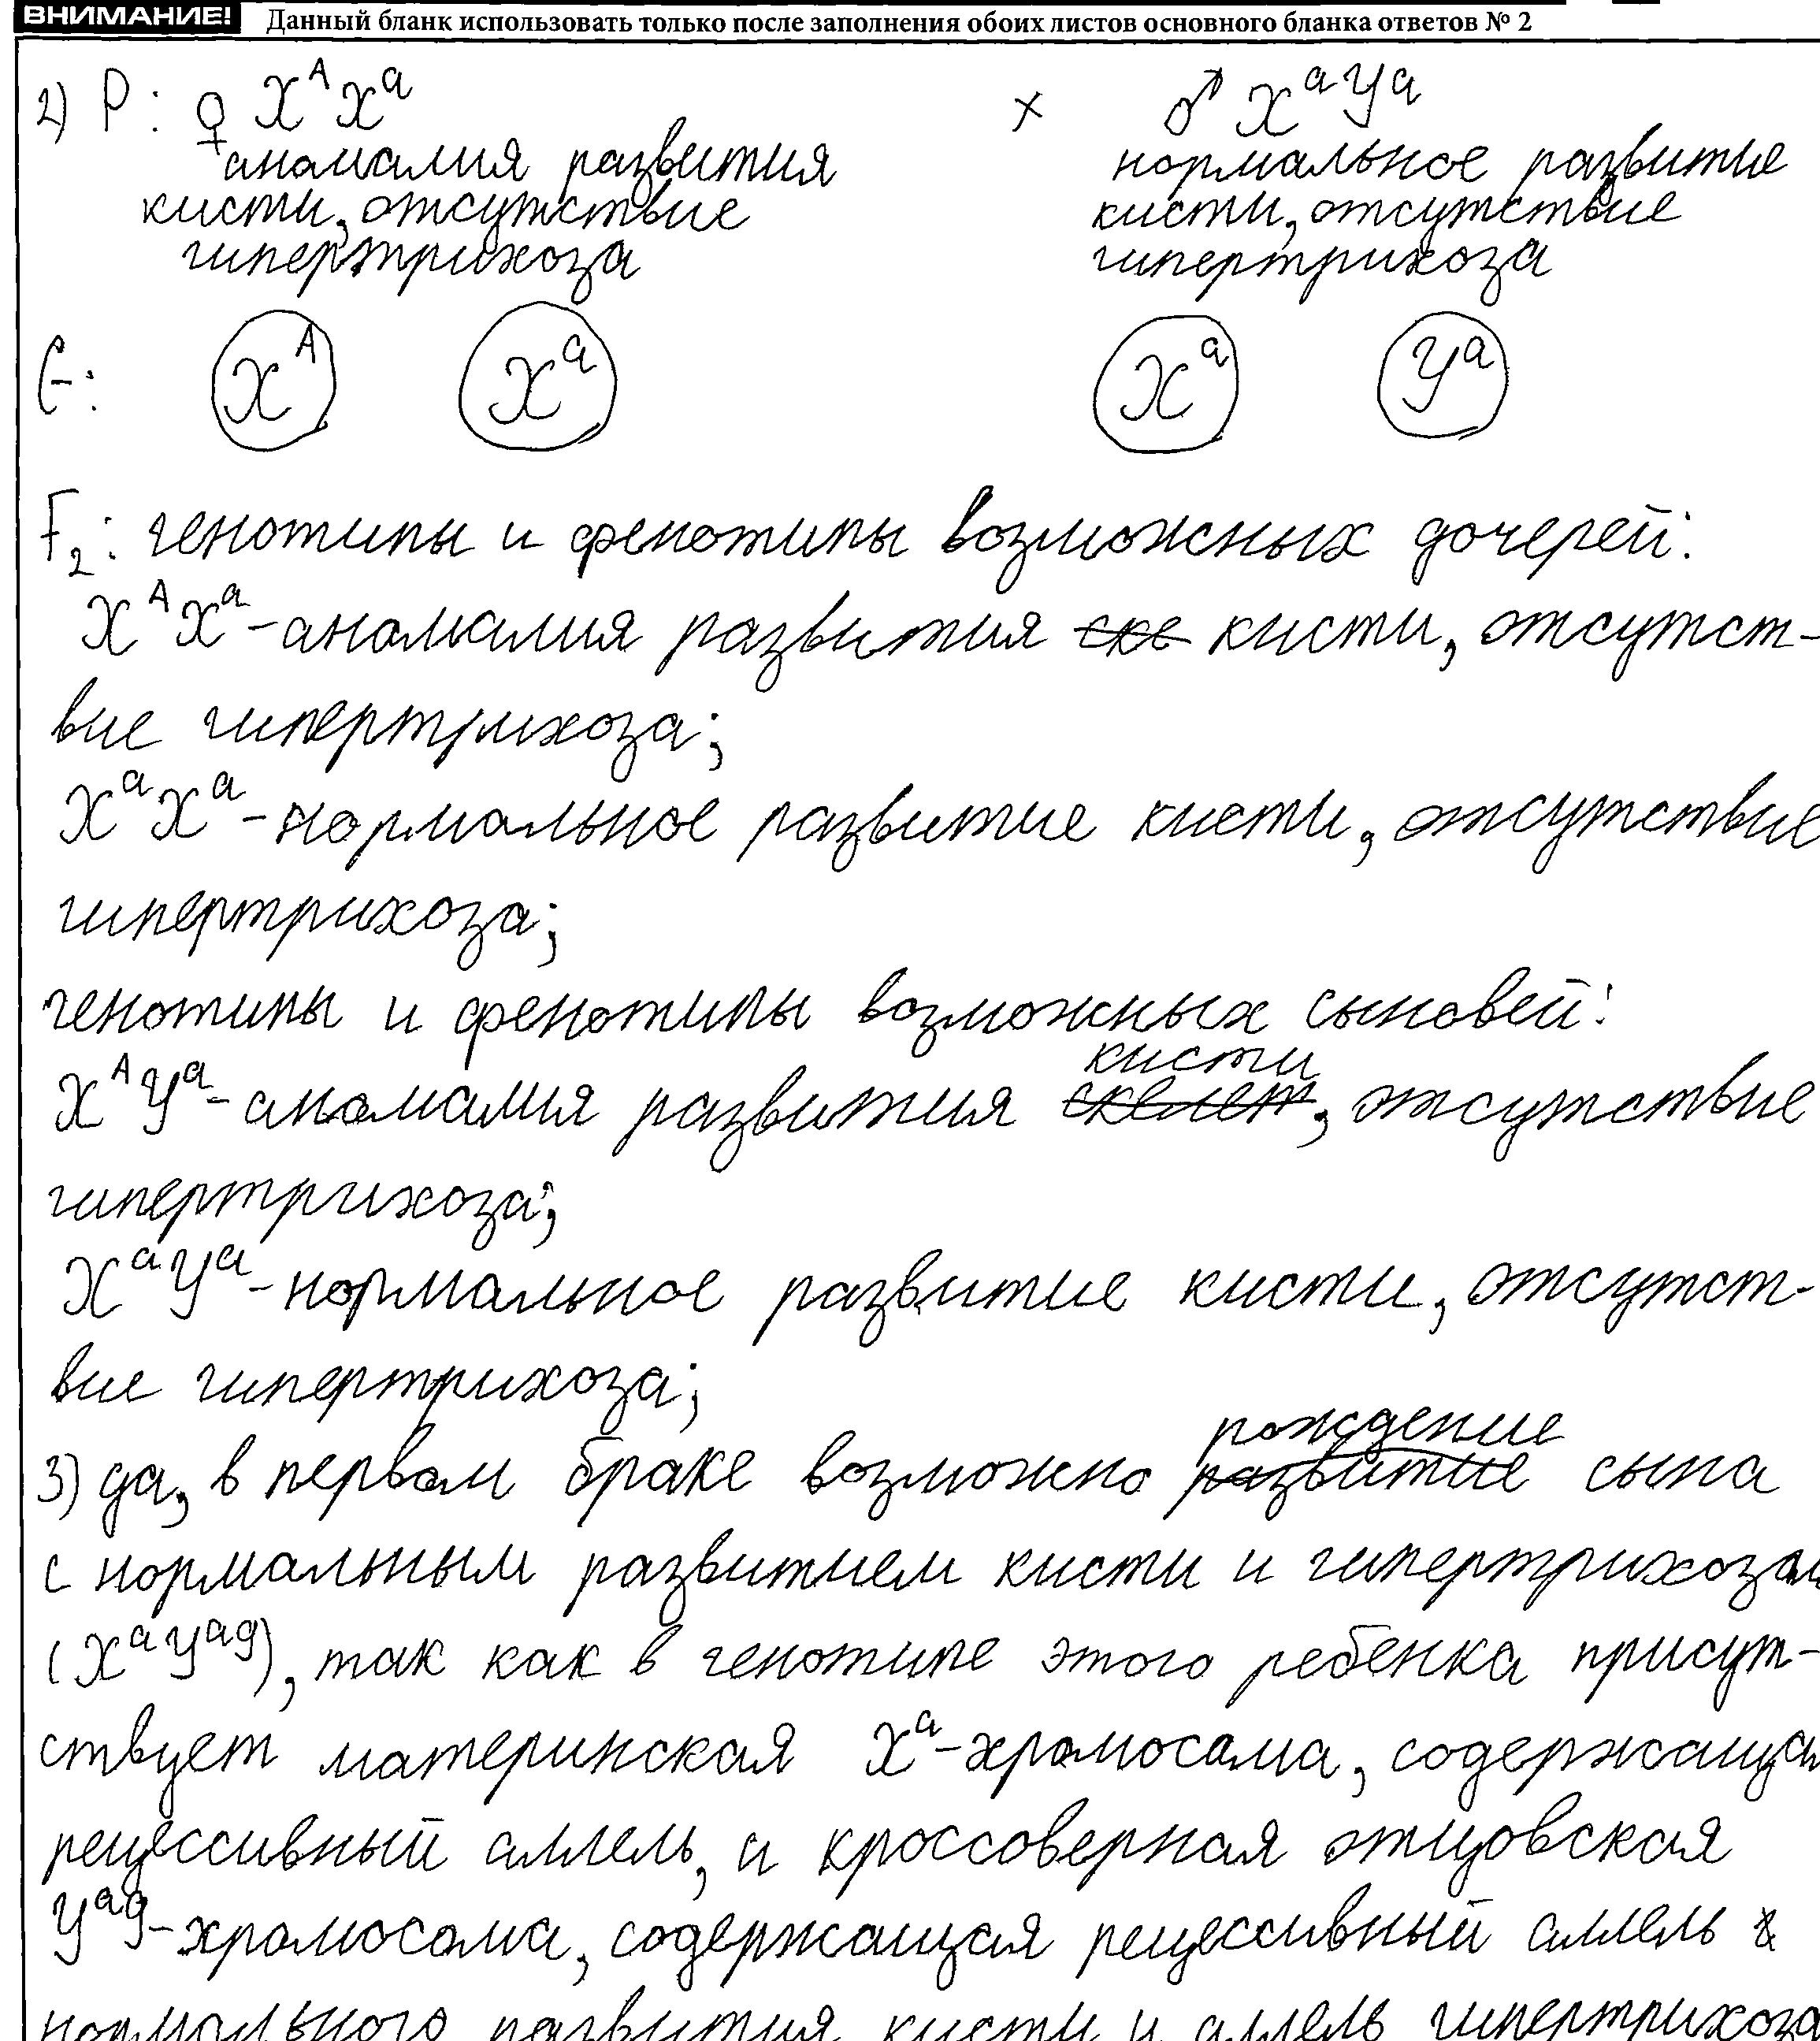 ВНИМАНИЕ! Данный бланк использовать только после заполнения обоих листов основного бланка ответов № 2
2) P: ♀ X^A X^a × ♂ X^a Y^a
аномалия развития нормальное развитие
кисти, отсутствие кисти, отсутствие
гипертрихоза гипертрихоза
G: X^A X^a X^a Y^a
F₂: генотипы и фенотипы возможных дочерей:
X^A X^a - аномалия развития ~~ске~~ кисти, отсутст-
вие гипертрихоза;
X^a X^a - нормальное развитие кисти, отсутствие
гипертрихоза;
генотипы и фенотипы возможных сыновей:
кисти
X^A Y^a - аномалия развития ~~скелет~~, отсутствие
гипертрихоза;
X^a Y^a - нормальное развитие кисти, отсутст-
вие гипертрихоза;
рождение
3) да, в первом браке возможно ~~развитие~~ сына
с нормальным развитием кисти и гипертрихозом
(X^a Y^ag), так как в генотипе этого ребенка присут-
ствует материнская X^a-хромосома, содержащая
рецессивный аллель, и кроссоверная отцовская
Y^ag-хромосома, содержащая рецессивный аллель
нормального развития кисти и аллель гипертрихоза